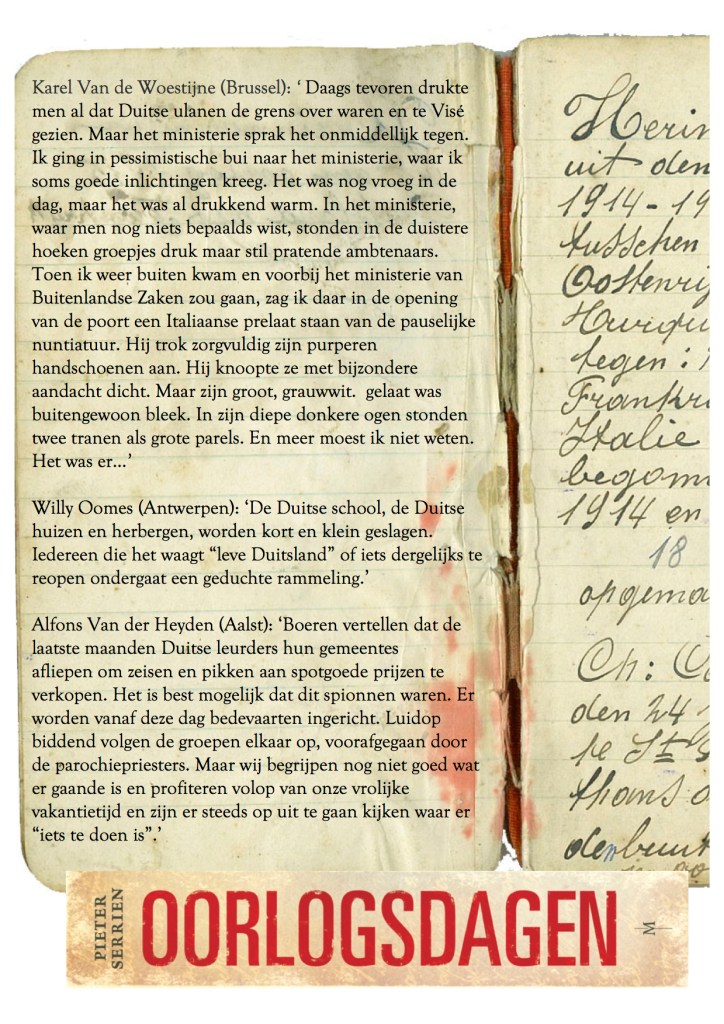 Karel Van de Woestijne (Brussel): ‘ Daags tevoren drukte
men al dat Duitse ulanen de grens over waren en te Visé
gezien. Maar het ministerie sprak het onmiddellijk tegen.
Ik ging in pessimistische bui naar het ministerie, waar ik
soms goede inlichtingen kreeg. Het was nog vroeg in de
dag, maar het was al drukkend warm. In het ministerie,
waar men nog niets bepaalds wist, stonden in de duistere
hoeken groepjes druk maar stil pratende ambtenaars.
Toen ik weer buiten kwam en voorbij het ministerie van
Buitenlandse Zaken zou gaan, zag ik daar in de opening
van de poort een Italiaanse prelaat staan van de pauselijke
nuntiatuur. Hij trok zorgvuldig zijn purperen
handschoenen aan. Hij knoopte ze met bijzondere
aandacht dicht. Maar zijn groot, grauwwit. gelaat was
buitengewoon bleek. In zijn diepe donkere ogen stonden
twee tranen als grote parels. En meer moest ik niet weten.
Het was er...’
Willy Oomes (Antwerpen): ‘De Duitse school, de Duitse
huizen en herbergen, worden kort en klein geslagen.
Iedereen die het waagt “leve Duitsland” of iets dergelijks te
reopen ondergaat een geduchte rammeling.’
Alfons Van der Heyden (Aalst): ‘Boeren vertellen dat de
laatste maanden Duitse leurders hun gemeentes
afliepen om zeisen en pikken aan spotgoede prijzen te
verkopen. Het is best mogelijk dat dit spionnen waren. Er
worden vanaf deze dag bedevaarten ingericht. Luidop
biddend volgen de groepen elkaar op, voorafgegaan door
de parochiepriesters. Maar wij begrijpen nog niet goed wat
er gaande is en profiteren volop van onze vrolijke
vakantietijd en zijn er steeds op uit te gaan kijken waar er
“iets te doen is”.’
Herin
uit den
1914-19
tusschen
Oostenrij
tegen:
Frankr
Italie
begonn
1914 en
18
opgema
Ch:
den 24
te St
thans
PIETER
SERRIEN
OORLOGSDAGEN
M